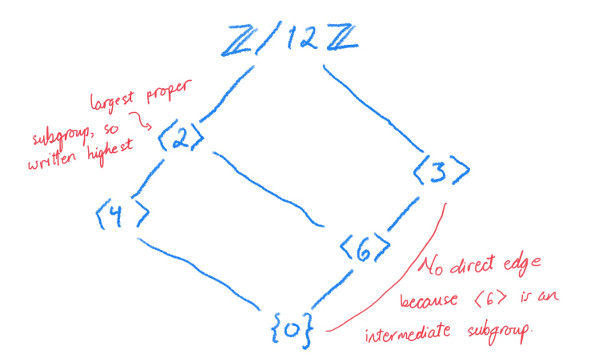 ℤ/12ℤ
largest proper
subgroup, so
written highest
<2>
<3>
<4>
<6>
No direct edge
because <6> is an
intermediate subgroup.
{0}